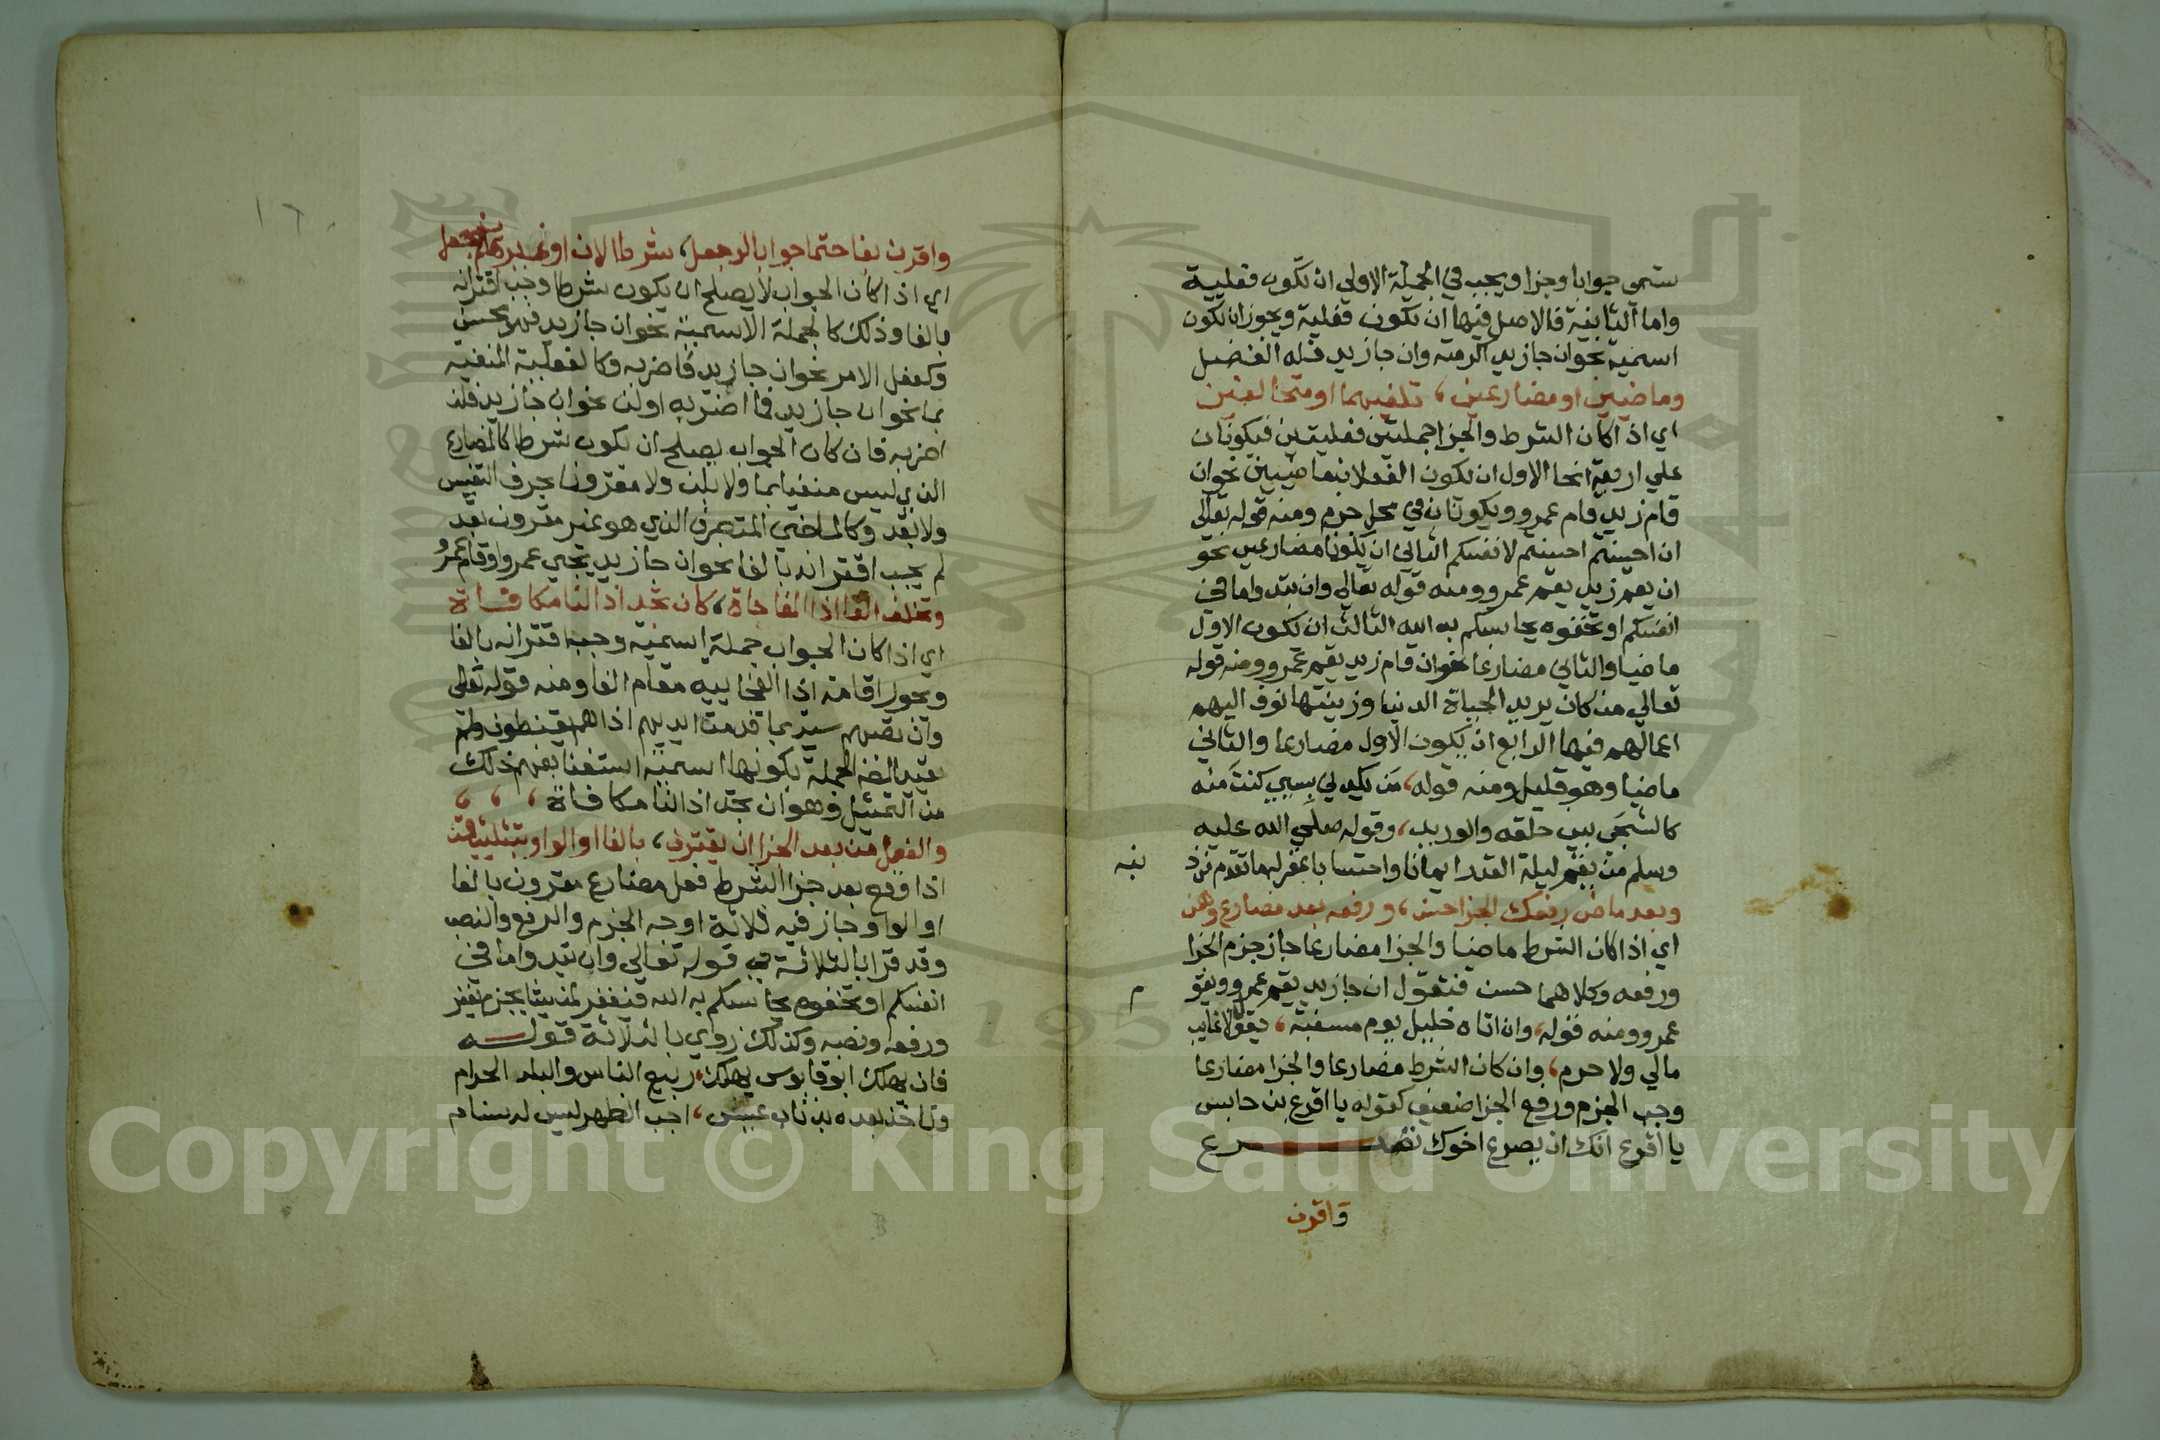 ستمى جوابا وجزا ويجب في الجملة الاولي ان تكون فعلية
واما الثانية فالاصل فيها ان تكون فعلية ويجوز ان تكون
اسمية نحوان جا زيد اكرمته وان جا زيد فله الفضل
وماضيين او مضارعين ، تلفيهما او متخالفين
اي اذا كان الشرط والجزا جملتين فعليتين فيكونان
علي اربعة انحا الاول ان يكون الفعلان ماضيين نحوان
قام زيد قام عمرو ويكونان في محل جزم ومنه قوله تعالي
ان احسنتم احسنتم لانفسكم الثاني ان يكونا مضارعين نحو
ان يقم زيد يقم عمرو ومنه قوله تعالي وان تبدوا ما في
انفسكم او تخفوه يحاسبكم به الله الثالث ان يكون الاول
ماضيا والثاني مضارعا نحوان قام زيد يقم عمرو ومنه قوله
تعالي من كان يريد الحياة الدنيا وزينتها نوف اليهم
اعمالهم فيها الرابع ان يكون الاول مضارعا والثاني
ماضيا وهو قليل ومنه قوله، من يكدني بسيي كنت منه
كالشجى بين حلقه والوريد، وقوله صلي الله عليه
وسلم من يقم ليلة القدر ايمانا واحتسابا غفر له ما تقدم من ذ
نبه
وبعد ماض رفعك الجزا حسن، ورفعه بعد مضارع وهن
اي اذا كان الشرط ماضيا والجزا مضارعا جاز جزم الجزا
ورفعه وكلاهما حسن فتقول ان جا زيد يقم عمرو ويقو
م
عمرو ومنه قوله، وان اتاه خليل يوم مسغبة ، يقول لا غايب
مالي ولا حرم، وان كان الشرط مضارعا والجزا مضارعا
وجب الجزم ورفع الجزا ضعيف كقوله يا اقرع بن حابس
يا اقرع انك ان يصرع اخوك تصرع
واقرن
١٦
واقرن بفا حتما جوابا لو جعل، شرطا لان او غيرها لم ينجعل
اي اذا كان الجواب لا يصلح ان يكون شرطا وجب اقترانه
بالفا وذلك كالجملة الاسمية نحوان جا زيد فهو محسن
وكفعل الامر نحوان جا زيد فاضربه وكالفعلية المنفية
بما نحوان جا زيد فما اضربه او لن نحوان جا زيد فلن
اضربه فان كان الجواب يصلح ان يكون شرطا كالمضارع
الذي ليس منفيا بما ولا بلن ولا مقرونا بحرف التنفيس
ولا بقد وكالماضي المتصرف الذي هو غير مقرون بقد
لم يجب اقترانه بالفا نحوان جا زيد يجي عمرو او قام عمرو
وتخلف الفا اذا المفاجاة، كان تجد اذا لنا مكافاة
اي اذا كان الجواب جملة اسمية وجب اقترانه بالفا
ويجوز اقامة اذا الفجاييه مقام الفا ومنه قوله تعالى
وان تصبهم سيئة بما قدمت ايديهم اذا هم يقنطون ولم
يقيد المض الجملة بكونها اسمية استغنا بفهم ذلك
من التمثيل وهو ان تجد اذا لنا مكافاة ، ، ،
والفعل من بعد الجزا ان يقترن، بالفا او الواو بتثليث قمن
اذا وقع بعد جزا الشرط فعل مضارع مقرون بالفا
او الواو جاز فيه ثلاثة اوجه الجزم والرفع والنصب
وقد قرا بالثلاثة قوله تعالي وان تبدوا ما في
انفسكم او تخفوه يحاسبكم به الله فيغفر لمن يشا بجزم يغفر
ورفعه ونصبه وكذلك روي بالثلاثة قوله
فان يهلك ابو قابوس يهلك، ربيع الناس والبلد الحرام
وناخذ بعده بذناب عيش، اجب الظهر ليس له سنام
Copyright © King Saud University
195